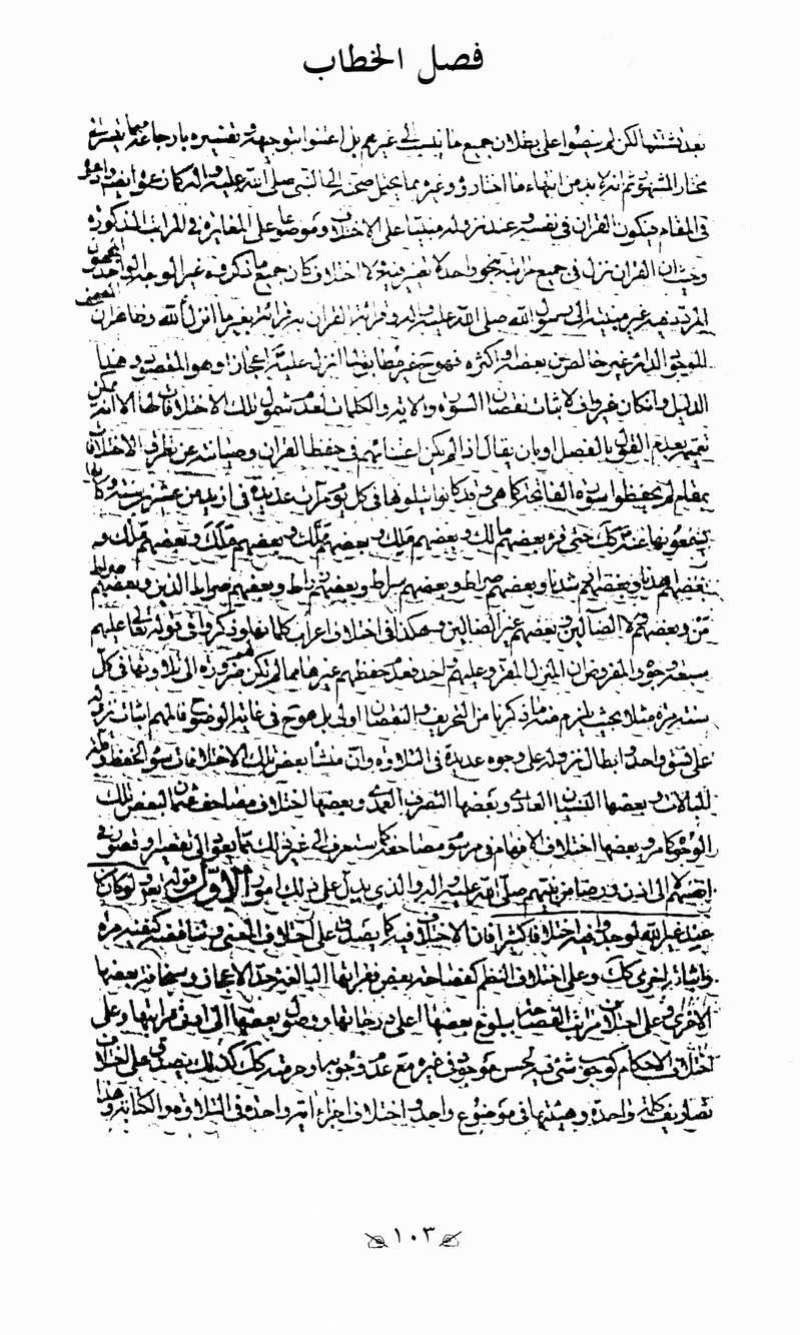 فصل الخطاب
بعد تشتتها لكن لم ينصوا على بطلان جميع ما ينسب الى غيرهم بل اعتنوا بتوجهه وتفسيره بارجاعه
مختار المشهور ثم انه لا بد من انتهاء ما اختاروه وغيره مما يحيل صحته الى النبي صلى الله عليه وآله كما زعموا
في المقام فيكون القرآن في نفسه وعند نزوله مبنيا على الاختلاف وموضوعا على المغايرة في المراتب المذكورة
وحيث ان القرآن نزل في جميع مراتبه بنحو واحد لا تغيير فيه ولا اختلاف كان جميع ما ذكروه غير الوجه الواحد المجهول
المردد فيه غير منتسبة الى رسول الله صلى الله عليه وآله وقرائة القرآن به قرائة بغير ما انزل الله وظاهر ان المصحف
الموجود الدائر غير خالص عن بعضه او اكثره فهو ح غير مطابق لما انزل عليه اعجازا وهو المقصود وهذا
الدليل وان كان غير واف لاثبات نقصان السورة والاية والكلمات لعدم شمول تلك الاختلافات لها الا انه يمكن
تتميمه بعدم القول بالفصل او بان يقال اذا لم يكن اعتنائهم في حفظ القرآن وصيانته عن تطرق الاختلاف
بمقام لم يحفظوا سورة الفاتحة كما هي وقد كانوا يتلونها في كل يوم مرات عديدة في ازيد من عشرين سنة وكانوا
يسمعونها عنه كك حتى قرء بعضهم مالك وبعضهم مليك وبعضهم ملك وبعضهم ملك وبعضهم ملك و
بعضهم اهدنا وبعضهم ارشدنا وبعضهم صراط وبعضهم سراط وبعضهم زراط وبعضهم صراط الذين وبعضهم صراط
من وبعضهم ولا الضالين وبعضهم غير الضالين وهكذا في اختلاف اعراب كلماتها وذكروا في قوله تعالى عليهم
سبعة وجوه والمفروض ان المنزل المقرو عليهم واحد فعدم حفظهم غيرها مما لم تكن لهم ضرورة الى تلاوتها في كل
سنة مرة مثلا بحيث يلزم منه ما ذكرنا من التحريف والنقصان اولى بل هو ح في غاية الوضوح فالمهم اثبات نزوله
على نسق واحد وابطال نزوله على وجوه عديدة في التلاوة وان منشأ بعض تلك الاختلافات سوء الحفظ وقلة
المبالات وبعضها النسيان العادي وبعضها التصرف العمدي وبعضها اختلاف مصاحف عثمان لبعض تلك
الوجوه كما مر وبعضها اختلاف الافهام في مرسوم مصاحفه كما ستعرف الى غير ذلك مما يعود الى تقصير او قصور في
انفسكم لا الى اذن ورضا من نبيهم صلى الله عليه وآله والذي يدل على ذلك امور الاول قوله تعالى ولو كان
من عند غير الله لوجدوا فيه اختلافا كثيرا فان الاختلاف فيه كما يصدق على اختلاف المعنى وتناقضه كنفيه مرة
واثباته اخرى كك وعلى اختلاف النظم كفصاحة بعض فقراتها البالغة حد الاعجاز وسخافة بعضها
الاخرى وعلى اختلاف مراتب الفصاحة ببلوغ بعضها اعلى درجاتها ووصول بعضها الى ادنى مراتبها وعلى
اختلاف الاحكام كوجوب شيء فيه لحسن موجود في غيره مع عدم وجوبه او حرمته كك كذلك يصدق على اختلاف
تصاريف كلمة واحدة وهيئتها في موضوع واحد واختلاف اجزاء اية واحدة في التلاوة والكتابة وهذا
١٠٣